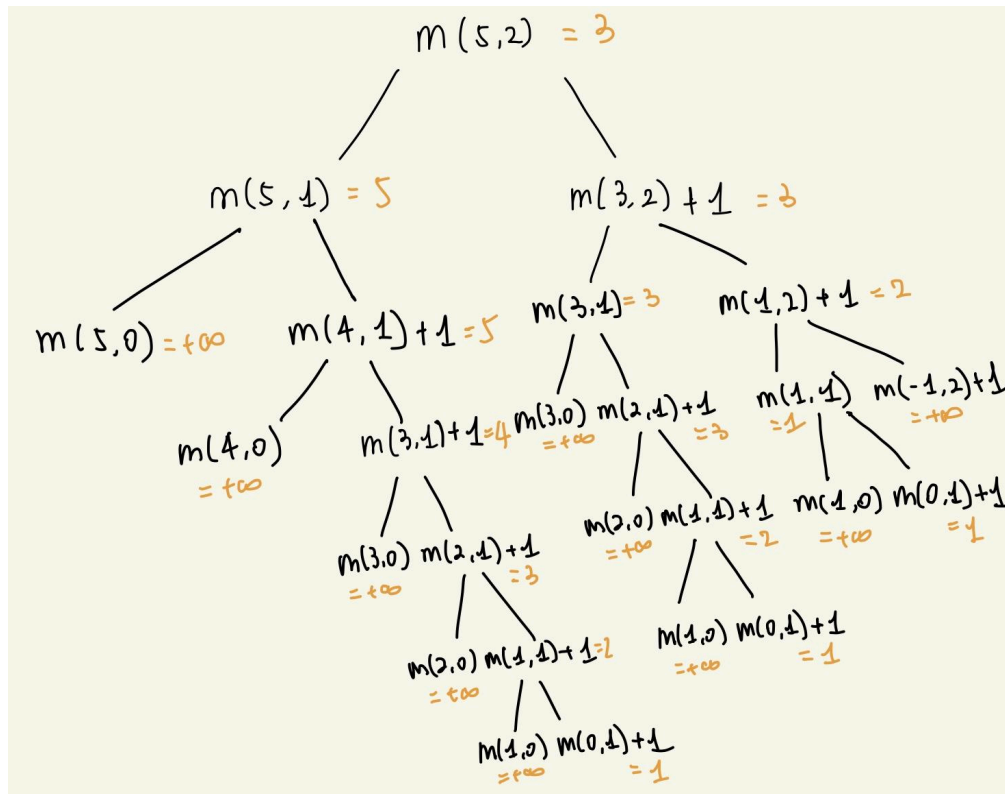 m(5,2) = 3
m(5,1) = 5
m(3,2)+1 = 3
m(5,0) = +∞
m(4,1)+1 = 5
m(3,1) = 3
m(1,2)+1 = 2
m(4,0)
= +∞
m(3,1)+1 = 4
m(3,0)
= +∞
m(2,1)+1
= 3
m(1,1)
= 1
m(-1,2)+1
= +∞
m(3,0)
= +∞
m(2,1)+1
= 3
m(2,0)
= +∞
m(1,1)+1
= 2
m(1,0)
= +∞
m(0,1)+1
= 1
m(2,0)
= +∞
m(1,1)+1 = 2
m(1,0)
= +∞
m(0,1)+1
= 1
m(1,0)
= +∞
m(0,1)+1
= 1